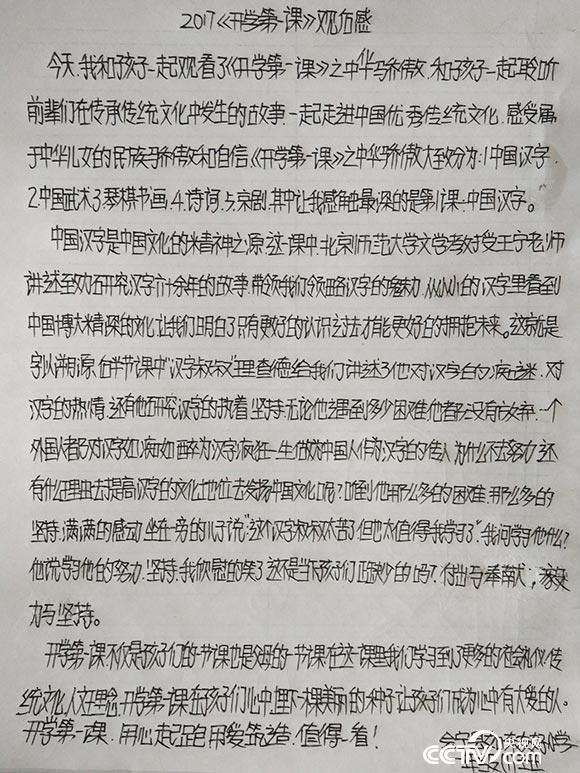 2017《开学第一课》观后感
今天,我和孩子一起观看了《开学第一课》之中华骄傲,和孩子一起聆听
前辈们在传承传统文化中发生的故事,一起走进中国优秀传统文化,感受属
于中华儿女的民族骄傲和自信,《开学第一课》之中华骄傲大致分为:1中国汉字.
2.中国武术3.琴棋书画.4.诗词.5.京剧,其中让我感触最深的是第1课:中国汉字。
中国汉字是中国文化的精神之源.这一课中,北京师范大学文学教授王宁老师
讲述致力研究汉字六十余年的故事,带领我们领略汉字的魅力,从小小的汉字里看到
中国博大精深的文化,让我们明白了只有更好的认识过去才能更好的拥抱未来。这就是
字以溯源,在半节课中"汉字叔叔"理查德给我们讲述了他对汉字的痴迷,对
汉字的热情,还有他研究汉字的执着,坚持,无论他遇到多少困难,他都没有放弃.一个
外国人都对汉字如痴如醉,为汉字疯狂一生,做为中国人作为汉字的传人为什么不去努力,还
有什么理由去提高汉字的文化地位去发扬中国文化呢?看到他那么多的困难,那么多的
坚持,满满的感动,坐在一旁的儿子说:"这个汉字叔叔太苦了,但也太值得我学习了."我问学习他什么?
他说学习他的努力,坚持,我欣慰的笑了,这不是当下孩子们正缺少的吗?付出与奉献,
力与坚持。
开学第一课不仅是孩子们的一节课也是父母的一节课,在这一课里我们学习到了更多的社会礼仪、传
统文化,人文理念,开学第一课在孩子们心中埋下一棵美丽的种子,让孩子们成为心中有大爱的人。
开学第一课.用心起跑,用爱筑造.值得一看!
小学
央视网
CCTV.com